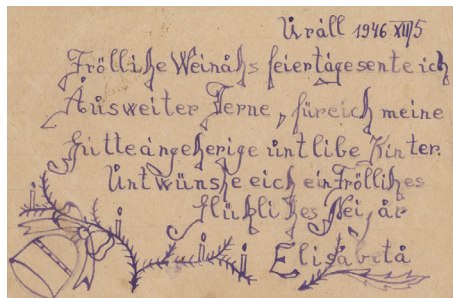 Uråll 1946 XII/5
Fröliche Weinåhs feiertågesente ich
Åusweiter Ferne, füreich meine
hutteångeherige unt libe Kinter.
Unt wünshe eich ein Fröliches
Glükliches Nei, år
Elisabetå